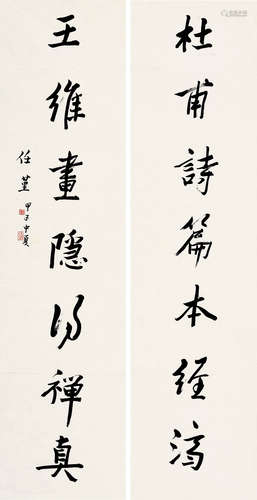 杜甫詩篇本經濟
王維畫隱得禪真
任堇 甲子中夏